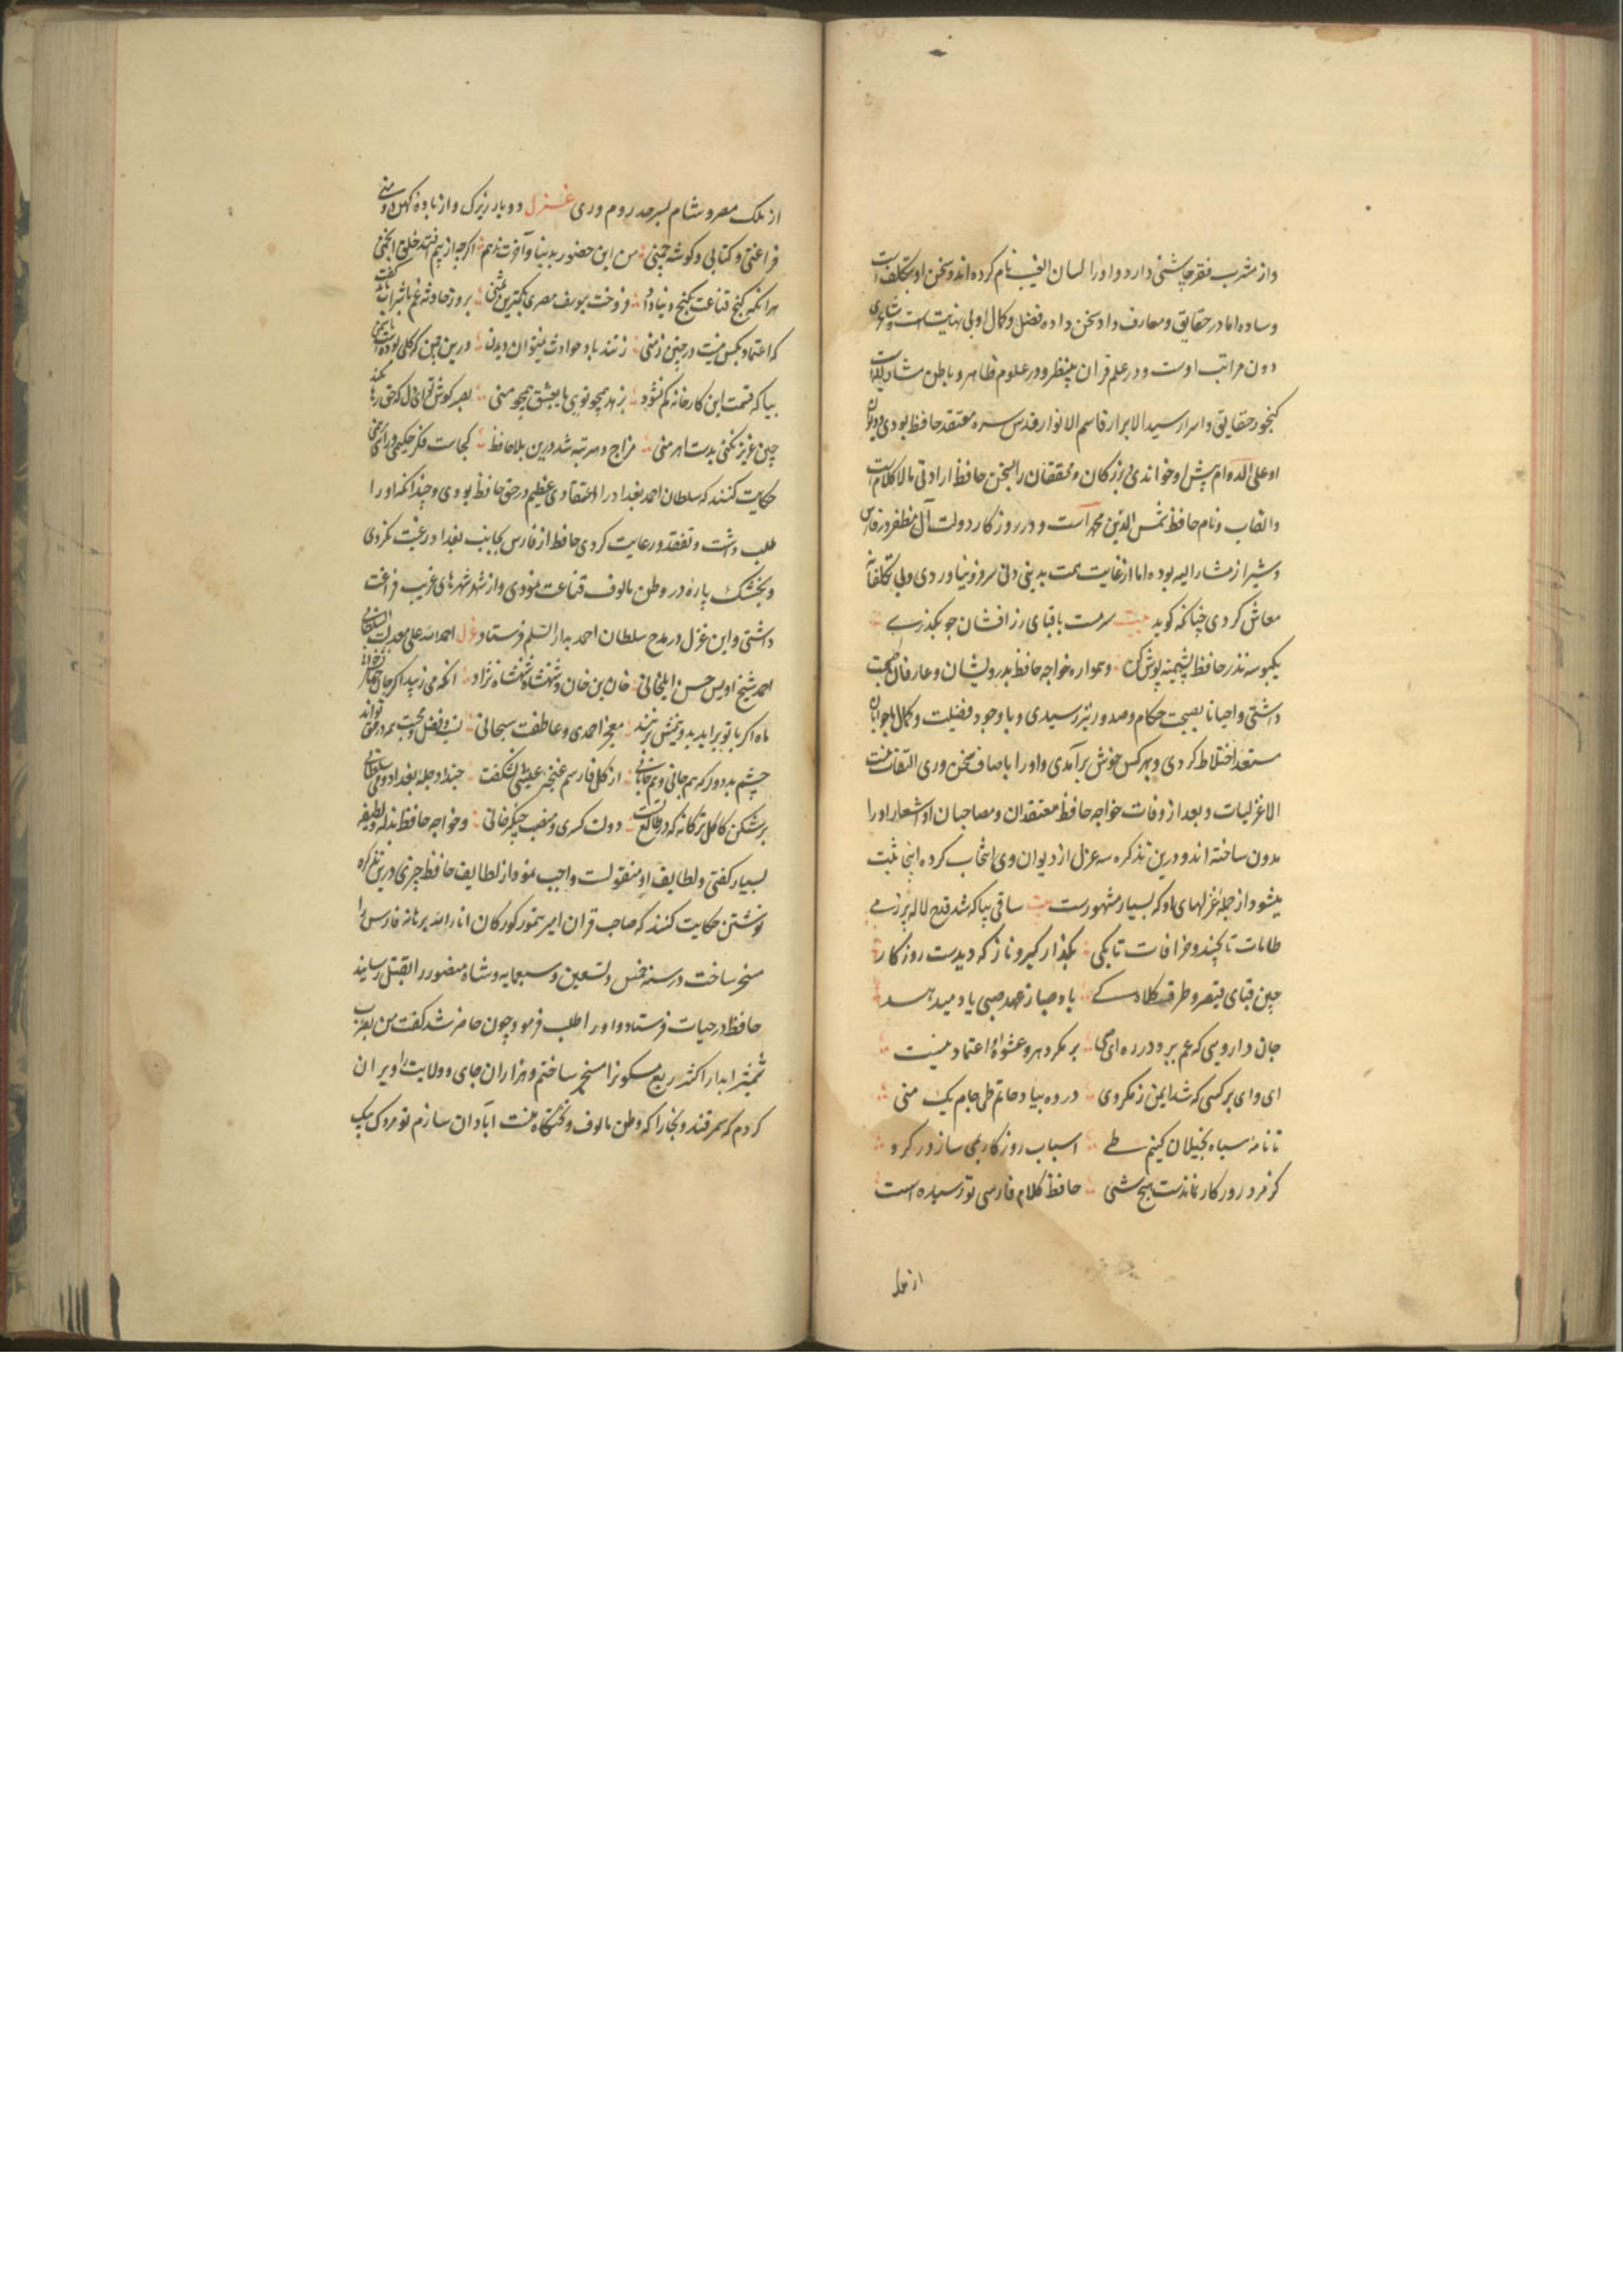 واز مشرب فقر چاشنی دارد و اورا لسان الغیب نام کرده اند و سخن او بی تکلف است
و ساده اما در حقایق و معارف داد سخن داده فضل و کمال او بی نهایت است و شاعری
دون مراتب اوست و در علم قران بینظیر و در علوم ظاهر و باطن مشار الیه است
کنجور حقایق و اسرار سید الابرار قاسم الانوار قدس سره معتقد حافظ بودی و دیوان
او علی الدوام پیش او خواندی و بزرکان و محققان را بسخن حافظ ارادتی مالاکلام است
والقاب و نام حافظ شمس الدین محمد است و در روزکار دولت آل مظفر در فارس
و شیراز مشار الیه بوده اما از غایت همت بدینی دنی سر فرو نیاوردی و بی تکلفانه
معاش کردی چنانکه کوید بیت سرمست با قبای زرافشان چو بکذری
یکبوسه نذر حافظ پشمینه پوش کن و همواره خواجه حافظ بدرویشان و عارفان صحبت
داشتی و احیانا بصحبت حکام و صدور نیز رسیدی و با وجود فضیلت و کمال با جوانان
مستعد اختلاط کردی و بهر کس خوش برآمدی و اورا باصناف سخن وری التفات نیست
الا غزلیات و بعد از وفات خواجه حافظ معتقدان و مصاحبان او اشعار اورا
مدون ساخته اند و درین تذکره سه غزل از دیوان وی انتخاب کرده اینجا ثبت
میشود از جمله غزلهای او که بسیار مشهورست بیت ساقی بیا که شد قدح لاله پر ز می
طامات تا بچند و خرافات تا بکی بکذار کبر و ناز که دیدست روزکار
چین قبای قیصر و طرف کلاه کی باد صبا ز عهد صبی یاد میدهد
جان داروی که غم ببرد در ده ای صبی بر مکر دهر و عشوه او اعتماد نیست
ای وای بر کسی که شد ایمن ز مکر وی در ده بیاد حاتم طی جام یک منی
تا نامه سیاه بخیلان کنیم طی اسباب روزکار بمی ساز در کرو
کز فرد روزکار نماندست هیچ شی حافظ کلام فارسی تو رسیده است
از ملک
از ملک مصر و شام بسرحد روم و ری غزل دو یار زیرک و از باده کهن دو منی
فراغتی و کتابی و کوشه چمنی من این حضور بدنیا و آخرت ندهم اکرچه از پیم افتند خلق انجمنی
هر انکه کنج قناعت بکنج دنیا داد فروخت یوسف مصری بکمترین ثمنی بروز حادثه غم با شراب باید کفت
که اعتماد بکس نیست در چنین زمنی ز تند باد حوادث نمیتوان دیدن درین چمن که کلی بوده است یا سمنی
بیا که قسمت این کارخانه کم نشود بزهد همچو تویی یا بعشق همچو منی بصبر کوش تو ای دل که حق رها نکند
چنین عزیز نکینی بدست اهرمنی مزاج دهر تبه شد درین بلا حافظ کجاست فکر حکیمی و رای برهمنی
حکایت کنند که سلطان احمد بغداد را اعتقادی عظیم در حق حافظ بودی و چندانکه اورا
طلب داشت و تفقد و رعایت کردی حافظ از فارس بجانب بغداد رغبت نکردی
و بخشک پاره در وطن مالوف قناعت نمودی و از شهد شهرهای غریب فراغت
داشتی و این غزل در مدح سلطان احمد بدار السلم فرستاد غزل احمد الله علی معدلت السلطانی
احمد شیخ اویس حسن ایلخانی خان بن خان و شهنشاه شهنشاه نژاد انکه می زیبد اکر جان جهانش خوانی
ماه اکر با تو براید بدو نیمش بزنند معجز احمدی و عاطفت سبحانی
چشم بد دور که هم جانی و هم جانانی از کل فارسم غنچه عیشی نشکفت حبذا دجله بغداد و می سلطانی
برشکن کاکل ترکانه که در طالع تست دولت کسری و منصب چنکزخانی و خواجه حافظ بذله و لطیفه
بسیار کفتی و لطایف او منقولست واجب نمود از لطایف حافظ چیزی درین تذکره
نوشتن حکایت کنند که صاحب قران امیر تیمور کورکان انار الله برهانه فارس را
مسخر ساخت در سنه خمس و تسعین و سبعمایه و شاه منصور را بقتل رسانید
حافظ در حیات فرستاد و اورا طلب فرمود چون حاضر شد کفت من بضرب
شمشیر ابدار اکثر ربع مسکون را مسخر ساختم و هزاران جای و ولایت را ویران
کردم که سمرقند و بخارا که وطن مالوف و تختکاه منست آبادان سازم تو مردک بیک